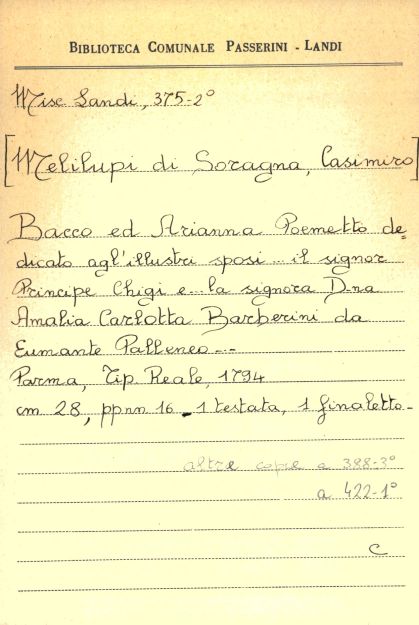 BIBLIOTECA COMUNALE PASSERINI - LANDI
Misc. Landi, 375-2°
[Melilupi di Soragna, Casimiro]
Bacco ed Arianna Poemetto de=
dicato agl'illustri sposi... il signor
Principe Chigi e... la signora D.na
Amalia Carlotta Barberini da
Eumante Palleneo...
Parma, Tip. Reale, 1794
cm 28, ppnn 16 - 1 testata, 1 finaletto -
altre copie a 388-3°
a 422-1°
C